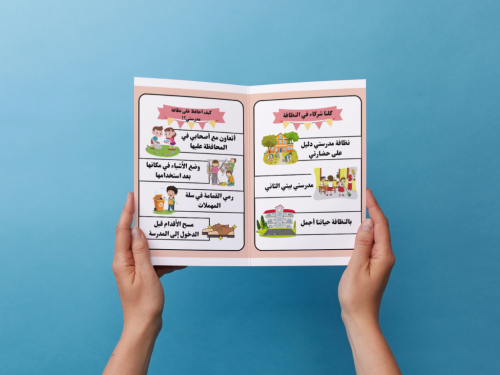 كلنا شركاء في النظافة
نظافة مدرستي دليل
على حضارتي
مدرستي بيتي الثاني
بالنظافة حياتنا أجمل
كيف أحافظ على نظافة
مدرستي؟!
أتعاون مع أصحابي في
المحافظة عليها
وضع الأشياء في مكانها
بعد استخدامها
رمي القمامة في سلة
المهملات
مسح الأقدام قبل
الدخول إلى المدرسة